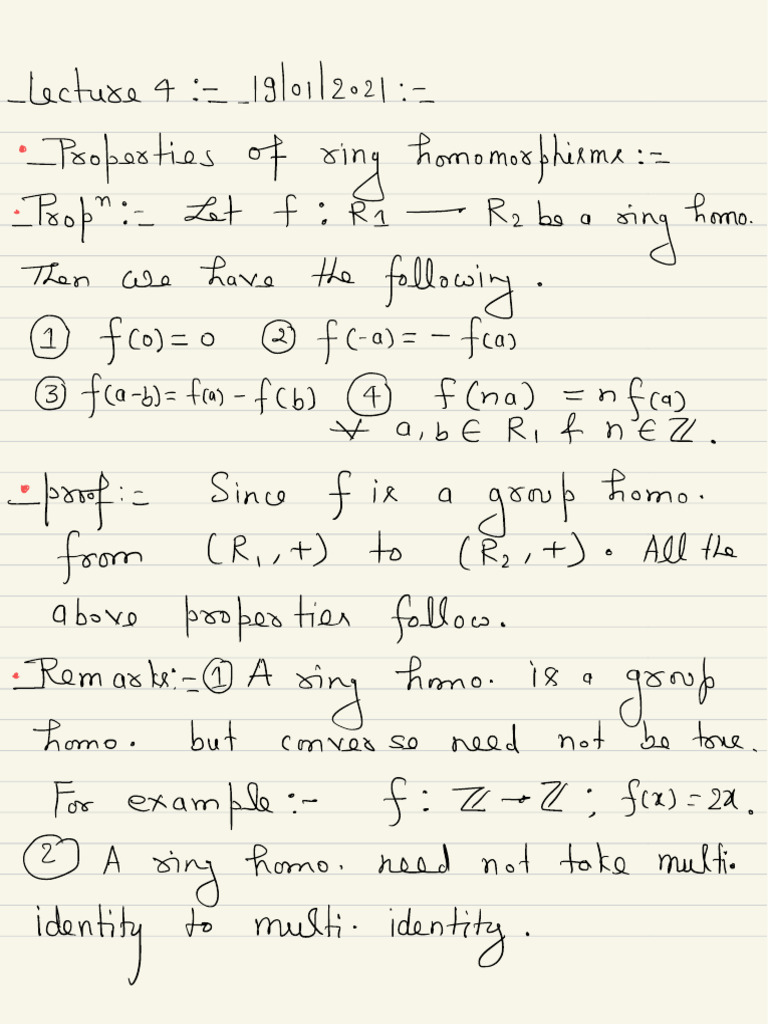 Lecture 4 :- 19/01/2021 :-
• Properties of ring homomorphisms :-
• Propⁿ :- Let f : R1 — R₂ be a ring homo.
Then we have the following.
① f(0) = 0 ② f(-a) = - f(a)
③ f(a-b) = f(a) - f(b) ④ f(na) = n f(a)
∀ a, b ∈ R₁ & n ∈ ℤ.
• proof :- Since f is a group homo.
from (R₁, +) to (R₂, +). All the
above properties follow.
• Remarks :- ① A ring homo. is a group
homo. but converse need not be true.
For example :- f : ℤ → ℤ ; f(x) = 2x.
② A ring homo. need not take multi.
identity to multi. identity.